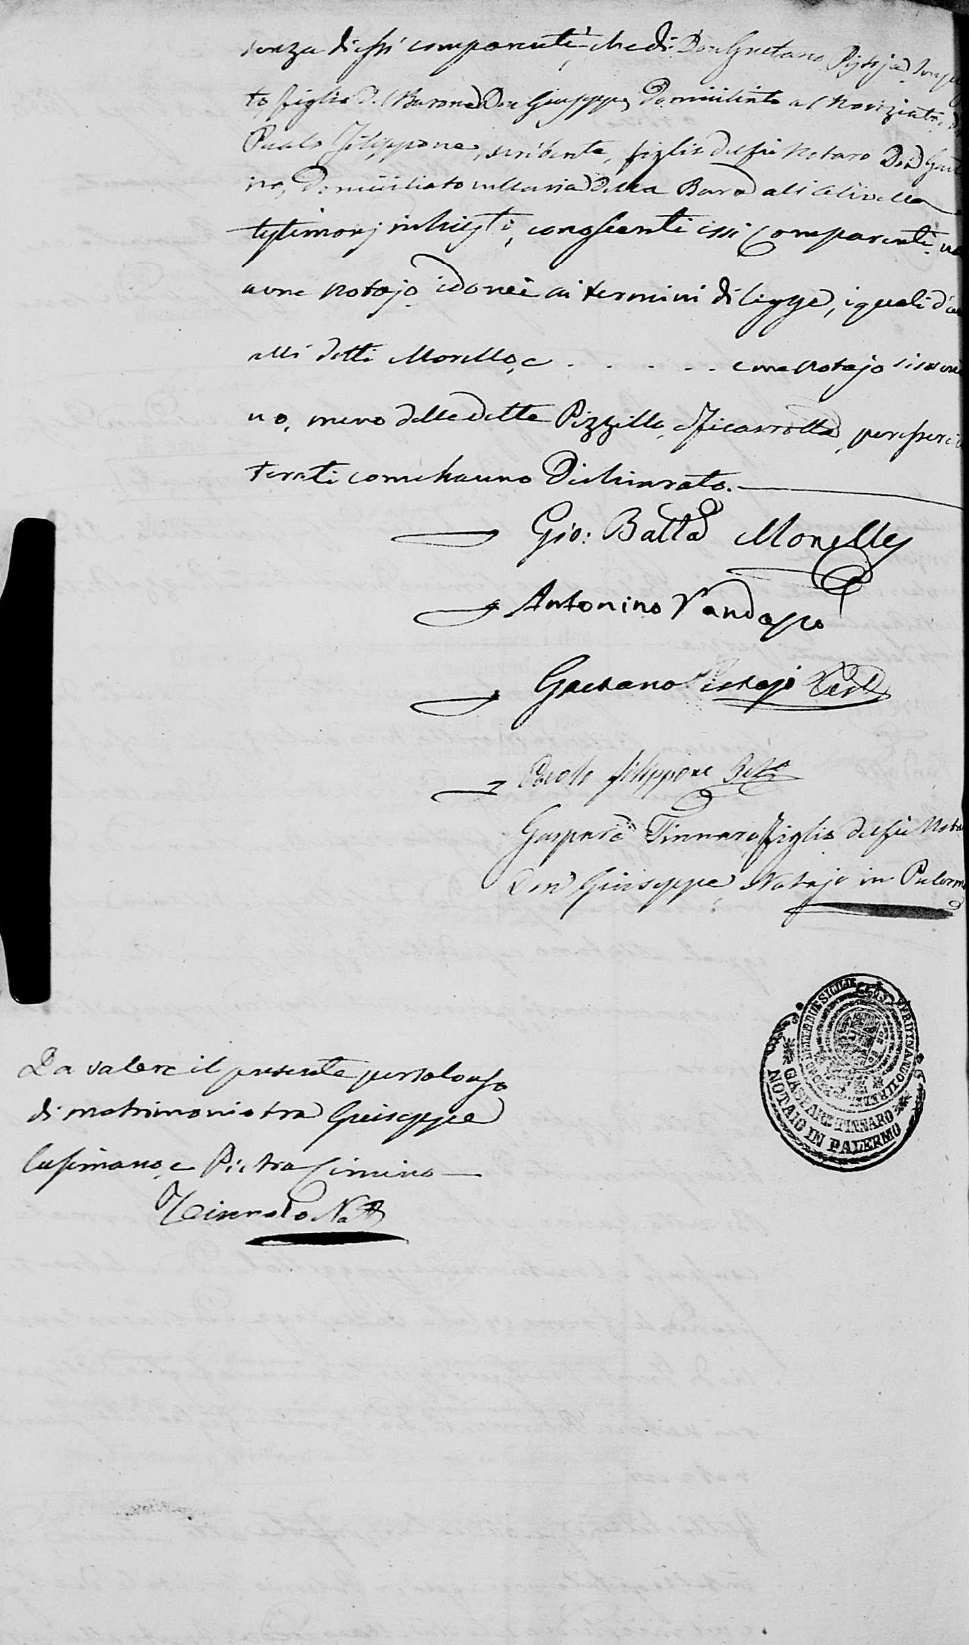 senza di essi comparenti, che di Don Gaetano
to, figlio del Barone Don Giuseppe, domiciliato al Noviziato,
Paolo Filippone, scribente, figlio del fù Notaro Don
no, domiciliato nella via della Bara all'Olivella
testimonj richiesti, conoscenti essi Comparenti
a me notajo idonei ai termini di legge, i quali
alli detti Morello, e . . . . . . e me notajo
no, meno delle dette Pizzillo, e Ficarrotta, per essere
terati come hanno dichiarato.
Gio: Batta Morello
Antonino Vandasso
Gaetano
Paolo Filippone
Gaspare Tinnaro figlio del fù
Don Giuseppe Notajo in Palermo
GASPARE TINNARO
NOTAIO IN PALERMO
Da valere il presente per solo uso
di matrimonio tra Giuseppe
Cusimano, e Pietra Cimino
Tinnaro